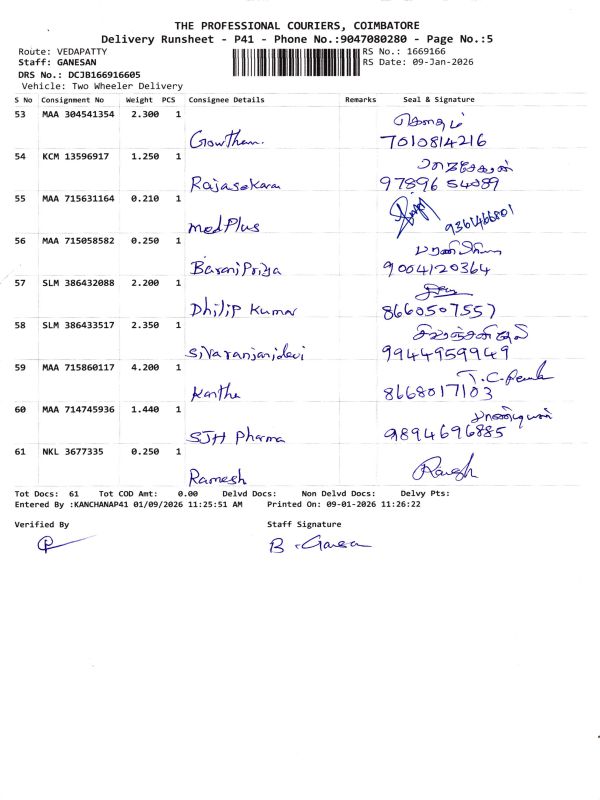 THE PROFESSIONAL COURIERS, COIMBATORE
Delivery Runsheet - P41 - Phone No.:9047080280 - Page No.:5
Route: VEDAPATTY RS No.: 1669166
Staff: GANESAN RS Date: 09-Jan-2026
DRS No.: DCJB166916605
Vehicle: Two Wheeler Delivery
S No Consignment No Weight PCS Consignee Details Remarks Seal & Signature
53 MAA 304541354 2.300 1
Gowtham. 7010814216
54 KCM 13596917 1.250 1
Rajasekara 97896 54089
55 MAA 715631164 0.210 1
medPlus 9361466801
56 MAA 715058582 0.250 1
BaraniPriya 9004120364
57 SLM 386432088 2.200 1
Dhilip Kumar 8660507557
58 SLM 386433517 2.350 1
Sivaranjanidevi 9944959949
59 MAA 715860117 4.200 1
Kantha 8668017103
60 MAA 714745936 1.440 1
SJH Pharma 9894696885
61 NKL 3677335 0.250 1
Ramesh
Tot Docs: 61 Tot COD Amt: 0.00 Delvd Docs: Non Delvd Docs: Delvy Pts:
Entered By :KANCHANAP41 01/09/2026 11:25:51 AM Printed On: 09-01-2026 11:26:22
Verified By Staff Signature
B. Ganesan